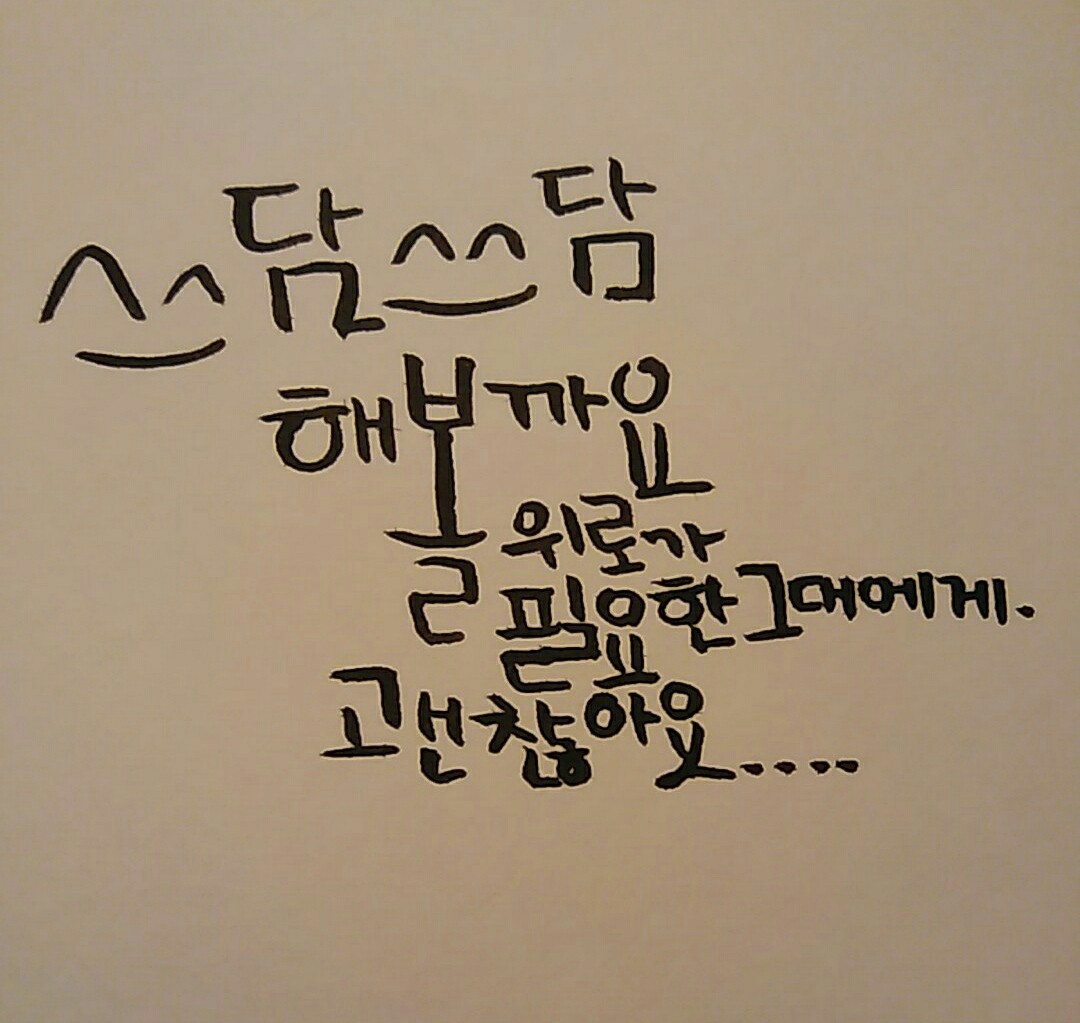 쓰담쓰담
해볼까요
위로가
필요한그대에게.
괜찮아요....